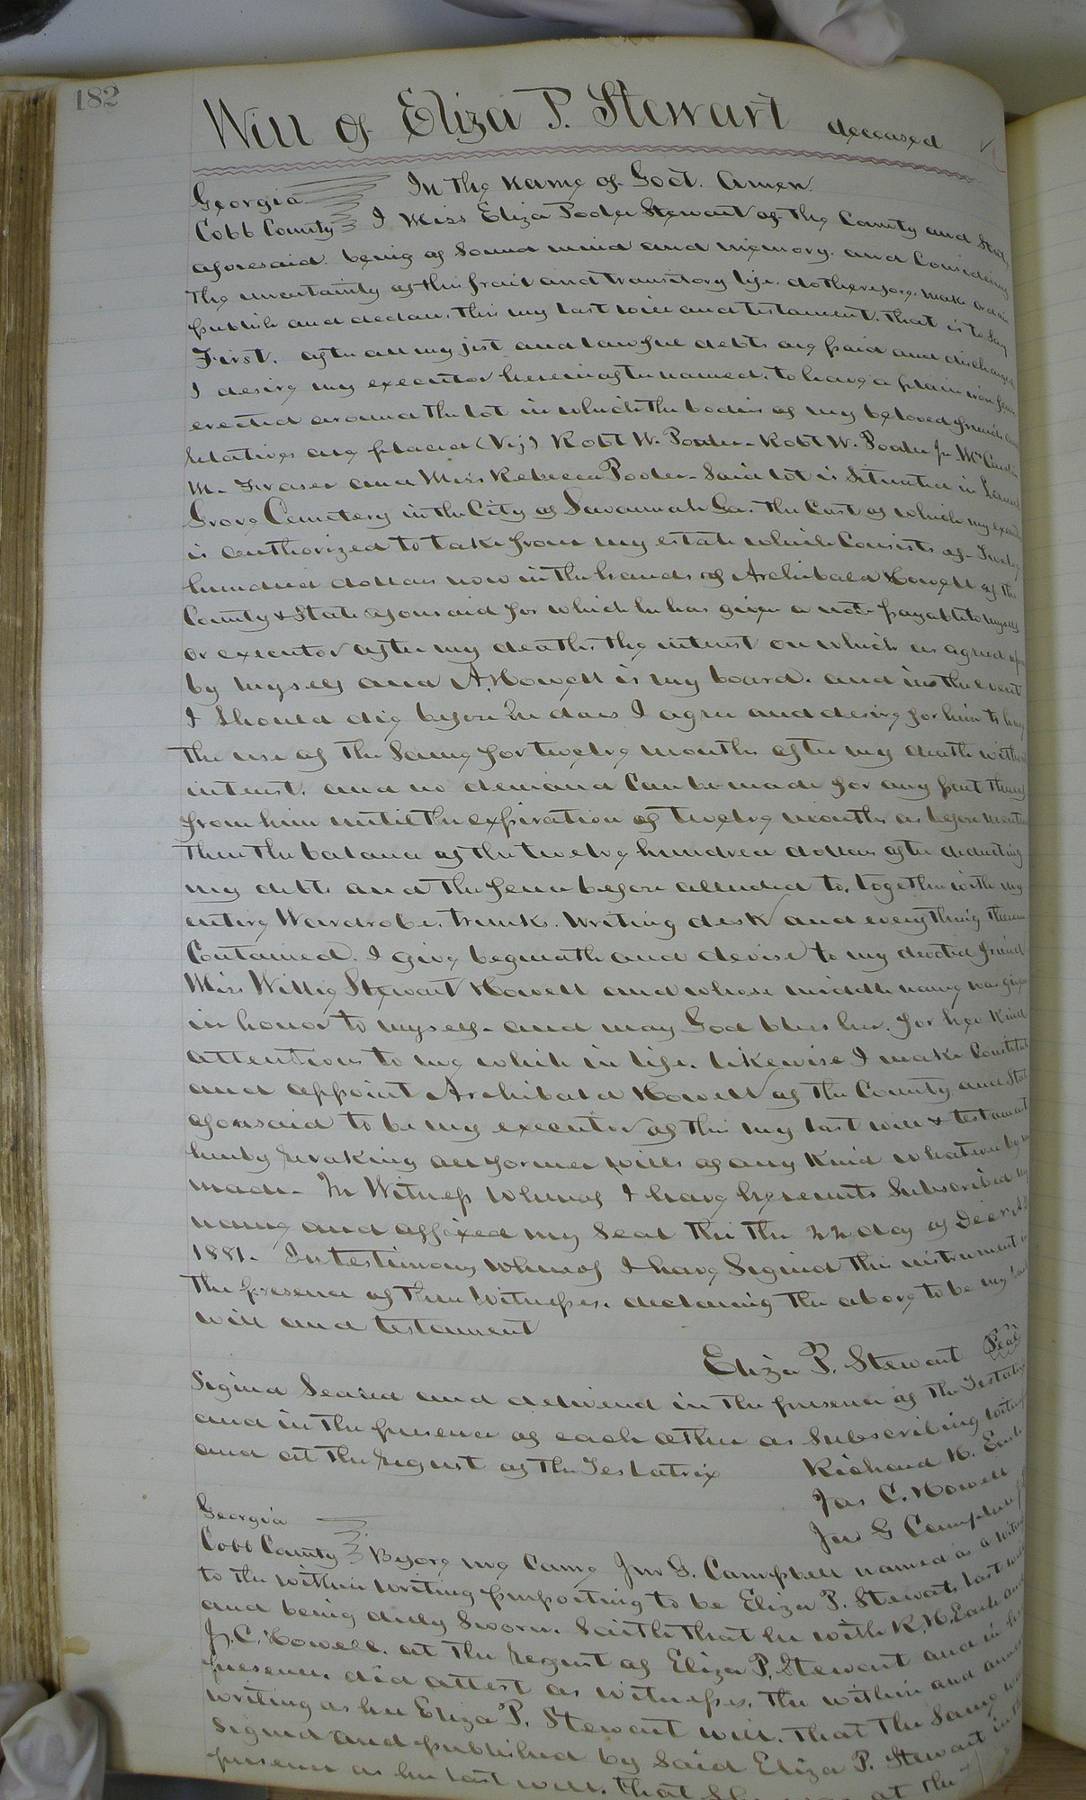 182
Will of Eliza P. Stewart deceased
Georgia In the name of God. Amen.
Cobb County I Miss Eliza Pooler Stewart of the County and State
aforesaid. being of Sound mind and memory. and Considering
the uncertainty of this frail and transitory life. do therefore. make ordain
publish and declare. this my last will and testament. that is to Say
First. after all my just and lawful debts are paid and discharged
I desire my executor hereinafter named. to have a plain iron fence
erected around the lot in which the bodies of my beloved friends and
relatives are placed (Viz) Robt W. Pooler - Robt W. Pooler Jr
M. Fraser and Miss Rebecca Pooler - Said lot is Situated in Laurel
Grove Cemetery in the City of Savannah Ga. the Cost of which my executor
is authorized to take from my estate which Consists of - Twelve
hundred dollars now in the hands of Archibald Howell of the
County & State aforesaid for which he has given a note payable to myself
or executor after my death, the interest on which as agreed upon
by myself and A. Howell is my board. and in the event
I Should die before he does I agree and desire for him to have
the use of the Same for twelve months after my death without
interest. and no demand Can be made for any part thereof
from him until the expiration of twelve months as before mentioned
then the balance of the twelve hundred dollars after deducting
my debts and the fence before alluded to, together with my
entire Wardrobe, trunks. Writing desk and everything therein
Contained. I give bequeath and devise to my devoted friend
Miss Willie Stewart Howell and whose middle name was given
in honor to myself - and may God bless her, for her Kind
attentions to me while in life. likewise I make Constitute
and appoint Archibald Howell of the County and State
aforesaid to be my executor of this my last will & testament
hereby revoking all former wills of any Kind whatever by me
made - In Witness whereof I have hereunto Subscribed my
name and affixed my Seal this the 22 day of Decr A.D.
1881. In testimony whereof I have Signed this instrument in
the presence of three Witnesses. declaring the above to be my last
will and testament
Eliza P. Stewart Seal
Signed Sealed and delivered in the presence of the Testatrix
and in the presence of each other as Subscribing Witnesses
and at the request of the Testatrix Richard H.
Jas C. Howell
Jno G Campbell
Georgia
Cobb County Before me Came Jno G. Campbell named as a Witness
to the within writing purporting to be Eliza P. Stewarts last will
and being duly Sworn. Saith that he with R. H. and
J. C. Howell. at the request of Eliza P. Stewart and in her
presence. did attest as witnesses, the within and annexed
writing as her Eliza P. Stewart will. that the Same was
Signed and published by Said Eliza P. Stewart in their
presence as her last will. that She was at the